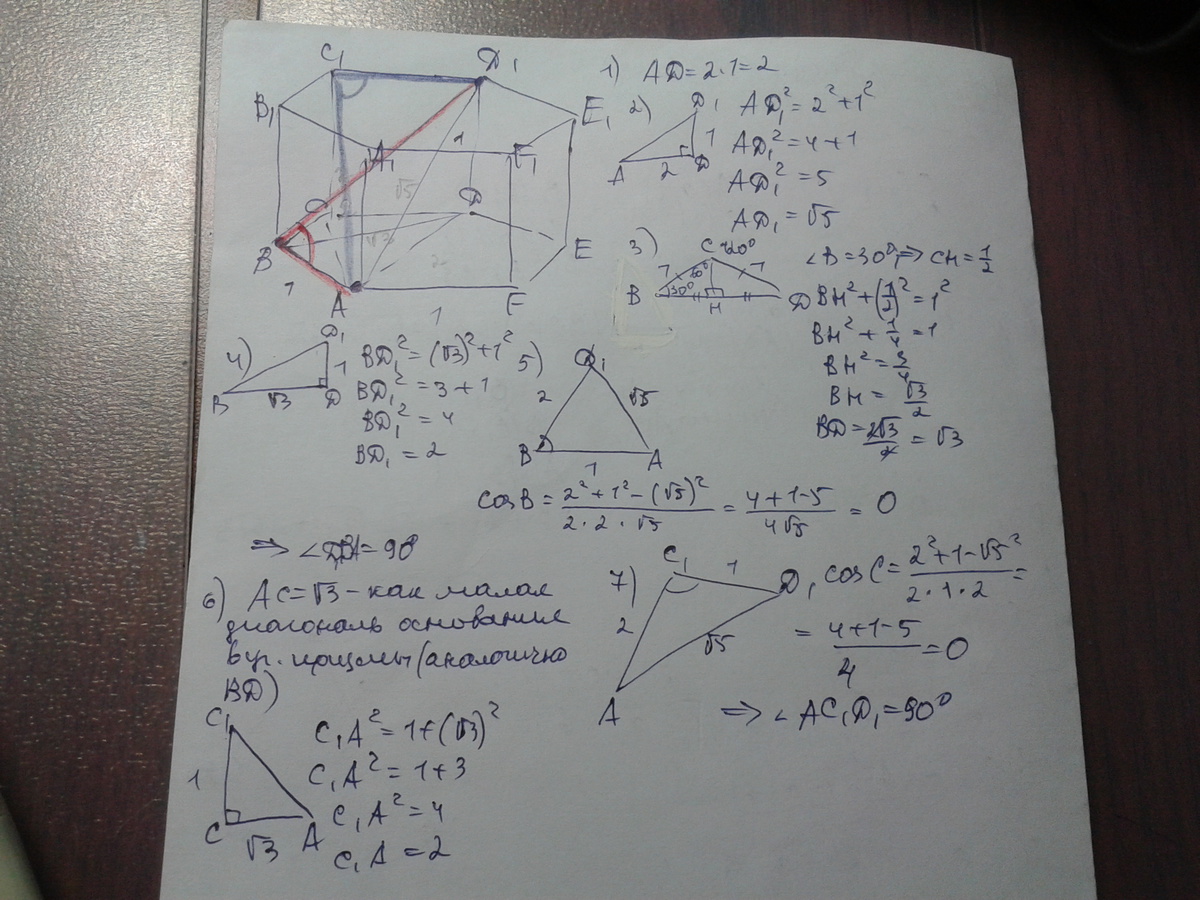 C₁
D₁
B₁
E₁
A₁
1
F₁
√5
C
D
B
√3
E
2
1
A
F
1
1) AD=2·1=2
2)
D₁
1
A
2
D
AD₁²=2²+1²
AD₁²=4+1
AD₁²=5
AD₁=√5
3)
C 120°
1
60°
1
B
30°
H
D
∠B=30°⇒ CH=1/2
BH²+(1/2)²=1²
BH²+1/4=1
BH²=3/4
BH=√3/2
BD=2√3/2=√3
4)
D₁
1
B
√3
D
BD₁²=(√3)²+1²
BD₁²=3+1
BD₁²=4
BD₁=2
5)
D₁
2
√5
B
1
A
cosB=(2²+1²-(√5)²)/(2·2·√5)=(4+1-5)/(4√5)=0
⇒ ∠D₁BA=90°
6) AC=√3-как малая
диагональ основания
пр. призмы (аналогично
BD)
C₁
1
C
√3
A
C₁A²=1+(√3)²
C₁A²=1+3
C₁A²=4
C₁A=2
7)
C₁
1
D₁
2
√5
A
cosC=(2²+1-√5²)/(2·1·2)=
=(4+1-5)/4=0
⇒ ∠AC₁D₁=90°